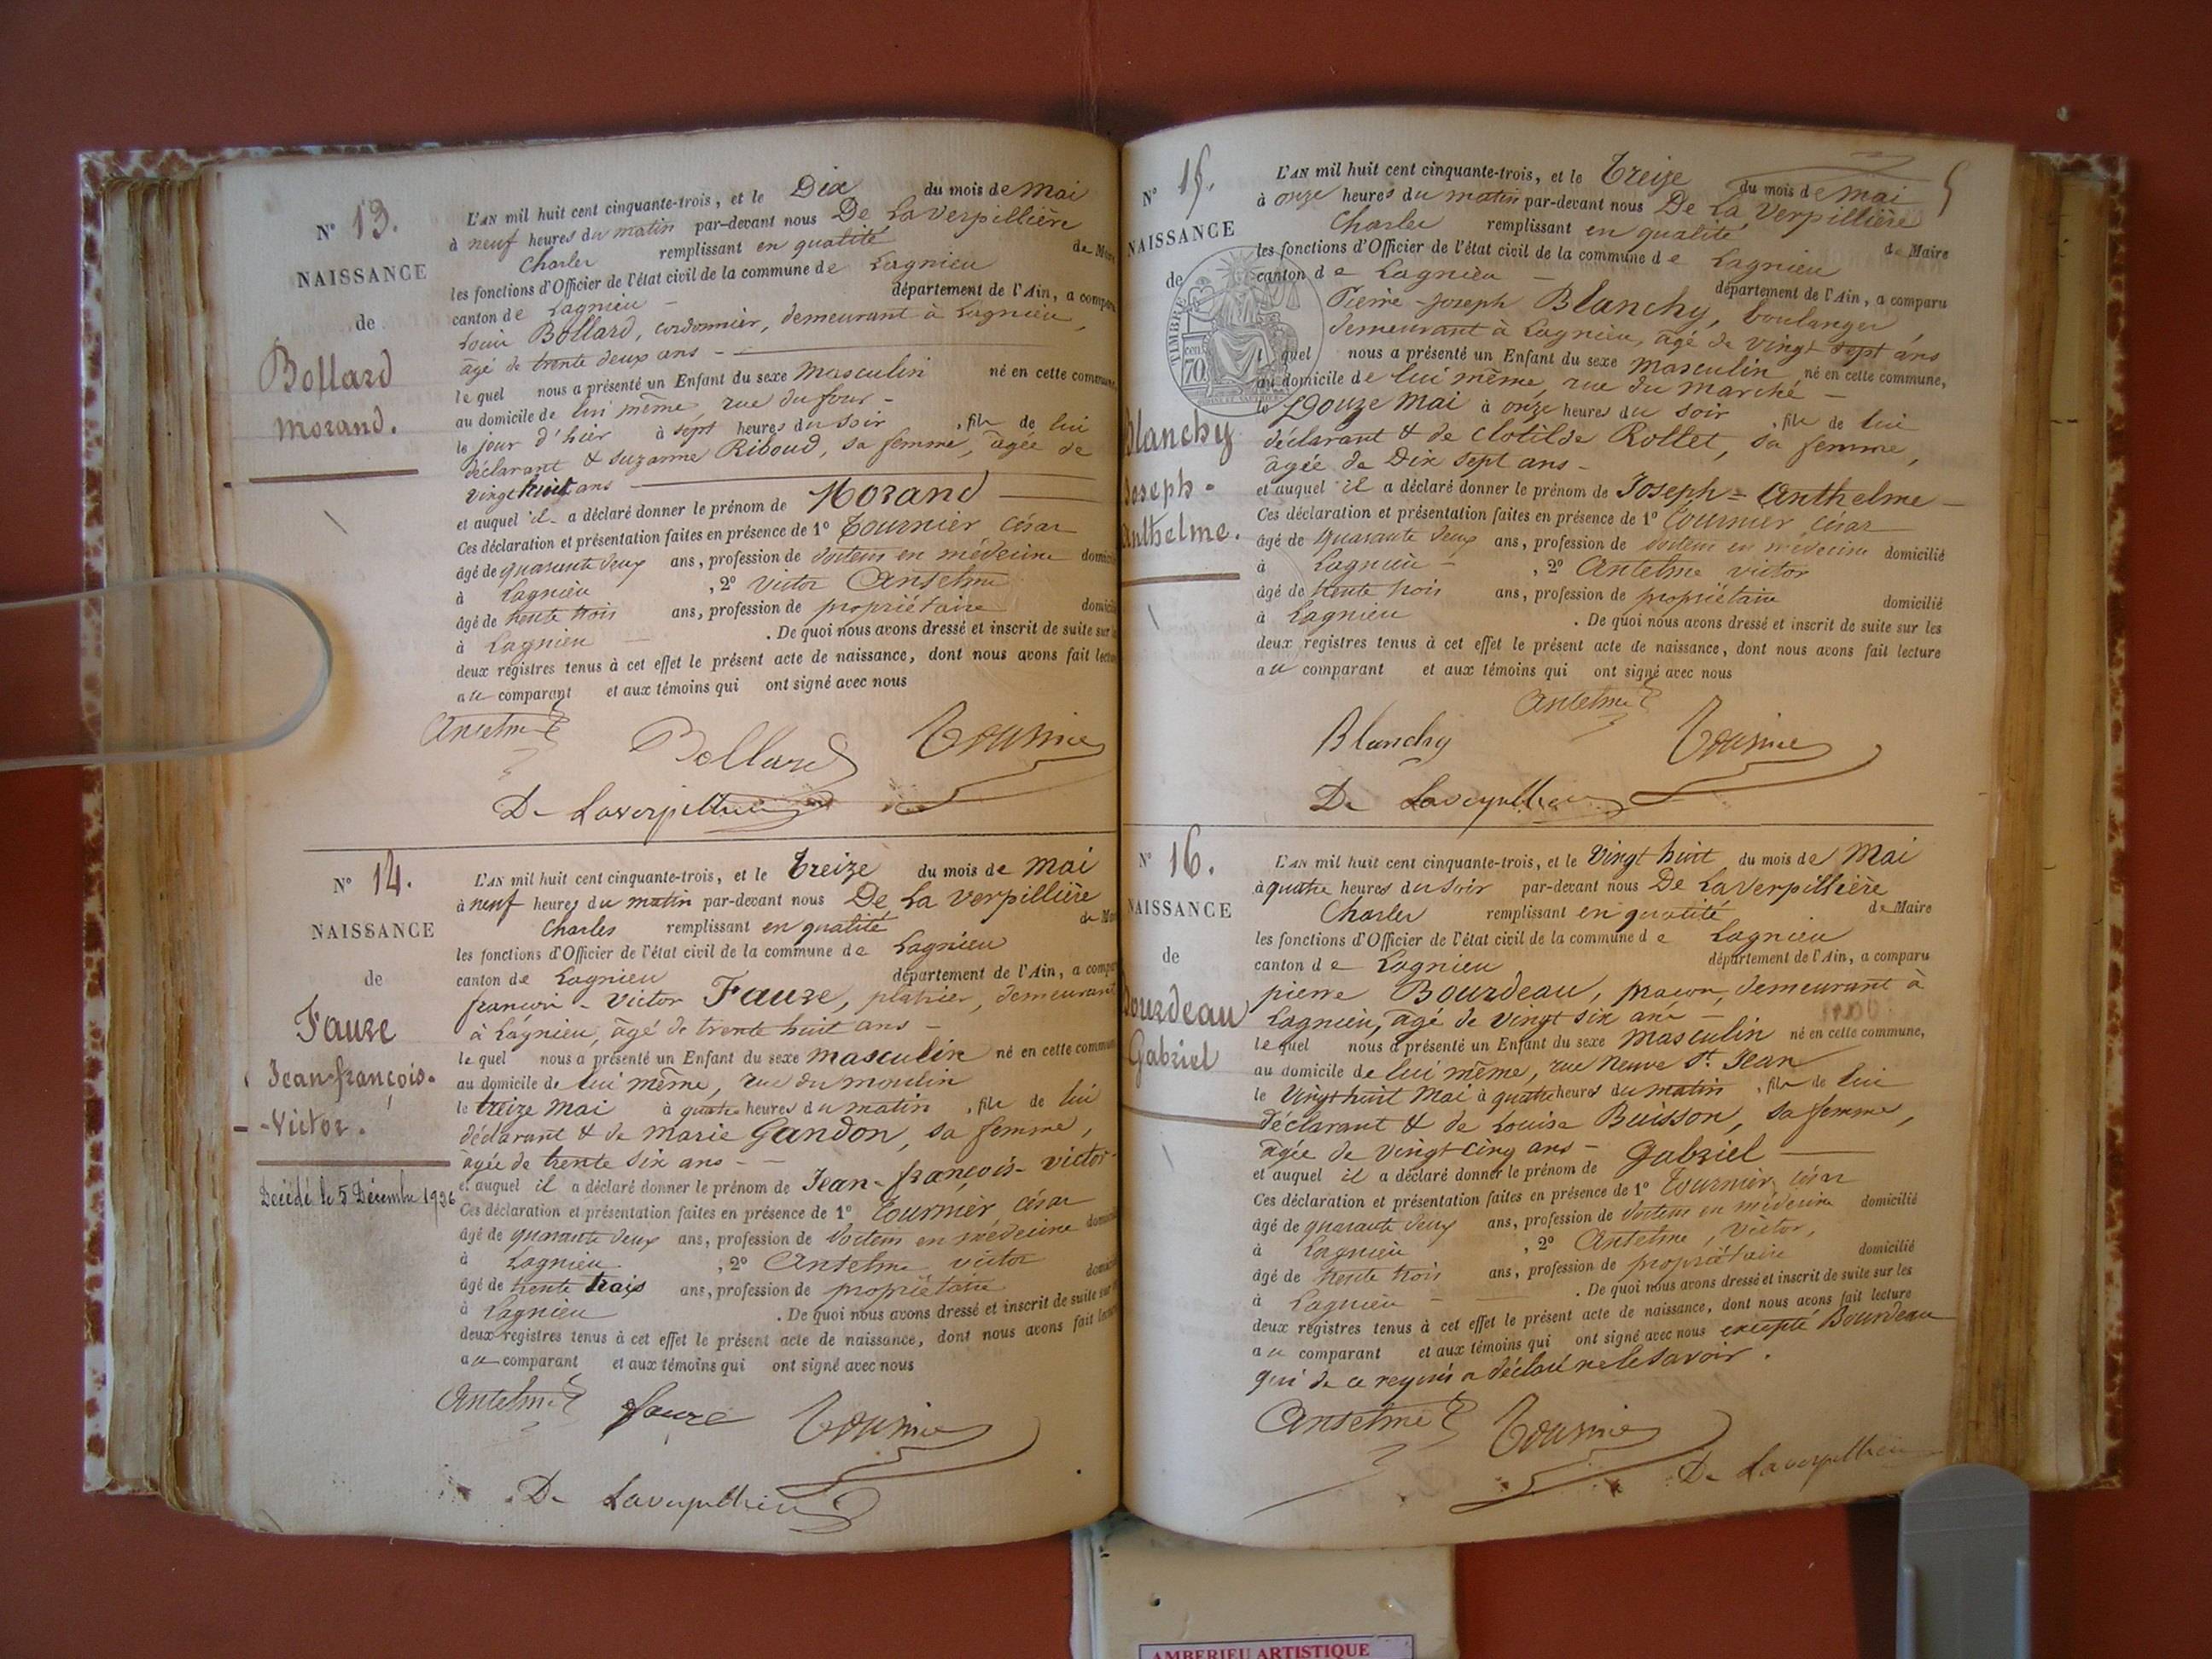 N° 13.
NAISSANCE
de
Bollard
Morand.
L'AN mil huit cent cinquante-trois, et le Dix du mois de Mai
à neuf heures du matin par-devant nous De La Verpillière
Charles remplissant en qualité de Maire
les fonctions d'Officier de l'état civil de la commune de Lagnieu
canton de Lagnieu – département de l'Ain, a comparu
Louis Bollard, cordonnier, demeurant à Lagnieu,
âgé de trente deux ans –
lequel nous a présenté un Enfant du sexe Masculin né en cette commune,
au domicile de lui même, rue du four –
le jour d'hier à sept heures du soir , fils de lui
déclarant & Suzanne Riboud, sa femme, âgée de
vingt huit ans
et auquel il a déclaré donner le prénom de Morand
Ces déclaration et présentation faites en présence de 1° Tournier César
âgé de quarante deux ans, profession de docteur en médecine domicilié
à Lagnieu , 2° Victor Anselme
âgé de trente trois ans, profession de propriétaire domicilié
à Lagnieu – . De quoi nous avons dressé et inscrit de suite sur les
deux registres tenus à cet effet le présent acte de naissance, dont nous avons fait lecture
au comparant et aux témoins qui ont signé avec nous
Anselme Bollard Tournier
De Laverpillière
N° 14.
NAISSANCE
de
Faure
Jean-françois-
-Victor.
Décédé le 5 Décembre 1936
L'AN mil huit cent cinquante-trois, et le Treize du mois de Mai
à neuf heures du matin par-devant nous De La Verpillière
Charles remplissant en qualité de Maire
les fonctions d'Officier de l'état civil de la commune de Lagnieu
canton de Lagnieu département de l'Ain, a comparu
françois-Victor Faure, platrier, demeurant
à Lagnieu, âgé de trente huit ans –
lequel nous a présenté un Enfant du sexe masculin né en cette commune
au domicile de lui même, rue du moulin
le treize Mai à quatre heures du matin , fils de lui
déclarant & de Marie Gandon, sa femme,
âgée de trente six ans –
et auquel il a déclaré donner le prénom de Jean-françois-victor
Ces déclaration et présentation faites en présence de 1° Tournier César
âgé de quarante deux ans, profession de docteur en médecine domicilié
à Lagnieu , 2° Anselme victor
âgé de trente trois ans, profession de propriétaire domicilié
à Lagnieu . De quoi nous avons dressé et inscrit de suite sur les
deux registres tenus à cet effet le présent acte de naissance, dont nous avons fait lecture
au comparant et aux témoins qui ont signé avec nous
Anselme faure Tournier
De Laverpillière
5
N° 15.
NAISSANCE
de
Blanchy
Joseph-
Anthelme.
TIMBRE
70
L'AN mil huit cent cinquante-trois, et le Treize du mois de Mai
à onze heures du matin par-devant nous De La Verpillière
Charles remplissant en qualité de Maire
les fonctions d'Officier de l'état civil de la commune de Lagnieu
canton de Lagnieu – département de l'Ain, a comparu
Pierre-joseph Blanchy, boulanger,
demeurant à Lagnieu, âgé de vingt sept ans
lequel nous a présenté un Enfant du sexe Masculin né en cette commune,
au domicile de lui même, rue du Marché –
le Douze Mai à onze heures du soir , fils de lui
déclarant & de Clotilde Rollet, sa femme,
âgée de Dix sept ans –
et auquel il a déclaré donner le prénom de Joseph=Anthelme –
Ces déclaration et présentation faites en présence de 1° Tournier César
âgé de Quarante deux ans, profession de docteur en médecine domicilié
à Lagnieu – , 2° Antelme victor
âgé de trente trois ans, profession de propriétaire domicilié
à Lagnieu . De quoi nous avons dressé et inscrit de suite sur les
deux registres tenus à cet effet le présent acte de naissance, dont nous avons fait lecture
au comparant et aux témoins qui ont signé avec nous
Antelme
Blanchy Tournier
De Laverpillière
N° 16.
NAISSANCE
de
Bourdeau
Gabriel
L'AN mil huit cent cinquante-trois, et le Vingt huit du mois de Mai
à quatre heures du soir par-devant nous De La Verpillière
Charles remplissant en qualité de Maire
les fonctions d'Officier de l'état civil de la commune de Lagnieu
canton de Lagnieu département de l'Ain, a comparu
pierre Bourdeau, maçon, demeurant à
Lagnieu, âgé de vingt six ans –
lequel nous a présenté un Enfant du sexe Masculin né en cette commune,
au domicile de lui même, rue Neuve St Jean
le Vingt huit Mai à quatre heures du matin , fils de lui
déclarant & de Louise Buisson, sa femme,
âgée de vingt-cinq ans –
et auquel il a déclaré donner le prénom de Gabriel
Ces déclaration et présentation faites en présence de 1° Tournier César
âgé de quarante deux ans, profession de docteur en médecine domicilié
à Lagnieu , 2° Antelme, Victor,
âgé de trente trois ans, profession de propriétaire domicilié
à Lagnieu – . De quoi nous avons dressé et inscrit de suite sur les
deux registres tenus à cet effet le présent acte de naissance, dont nous avons fait lecture
au comparant et aux témoins qui ont signé avec nous excepté Bourdeau
qui de ce requis a déclaré ne le savoir.
Anselme Tournier
De Laverpillière
AMBERIEU ARTISTIQUE